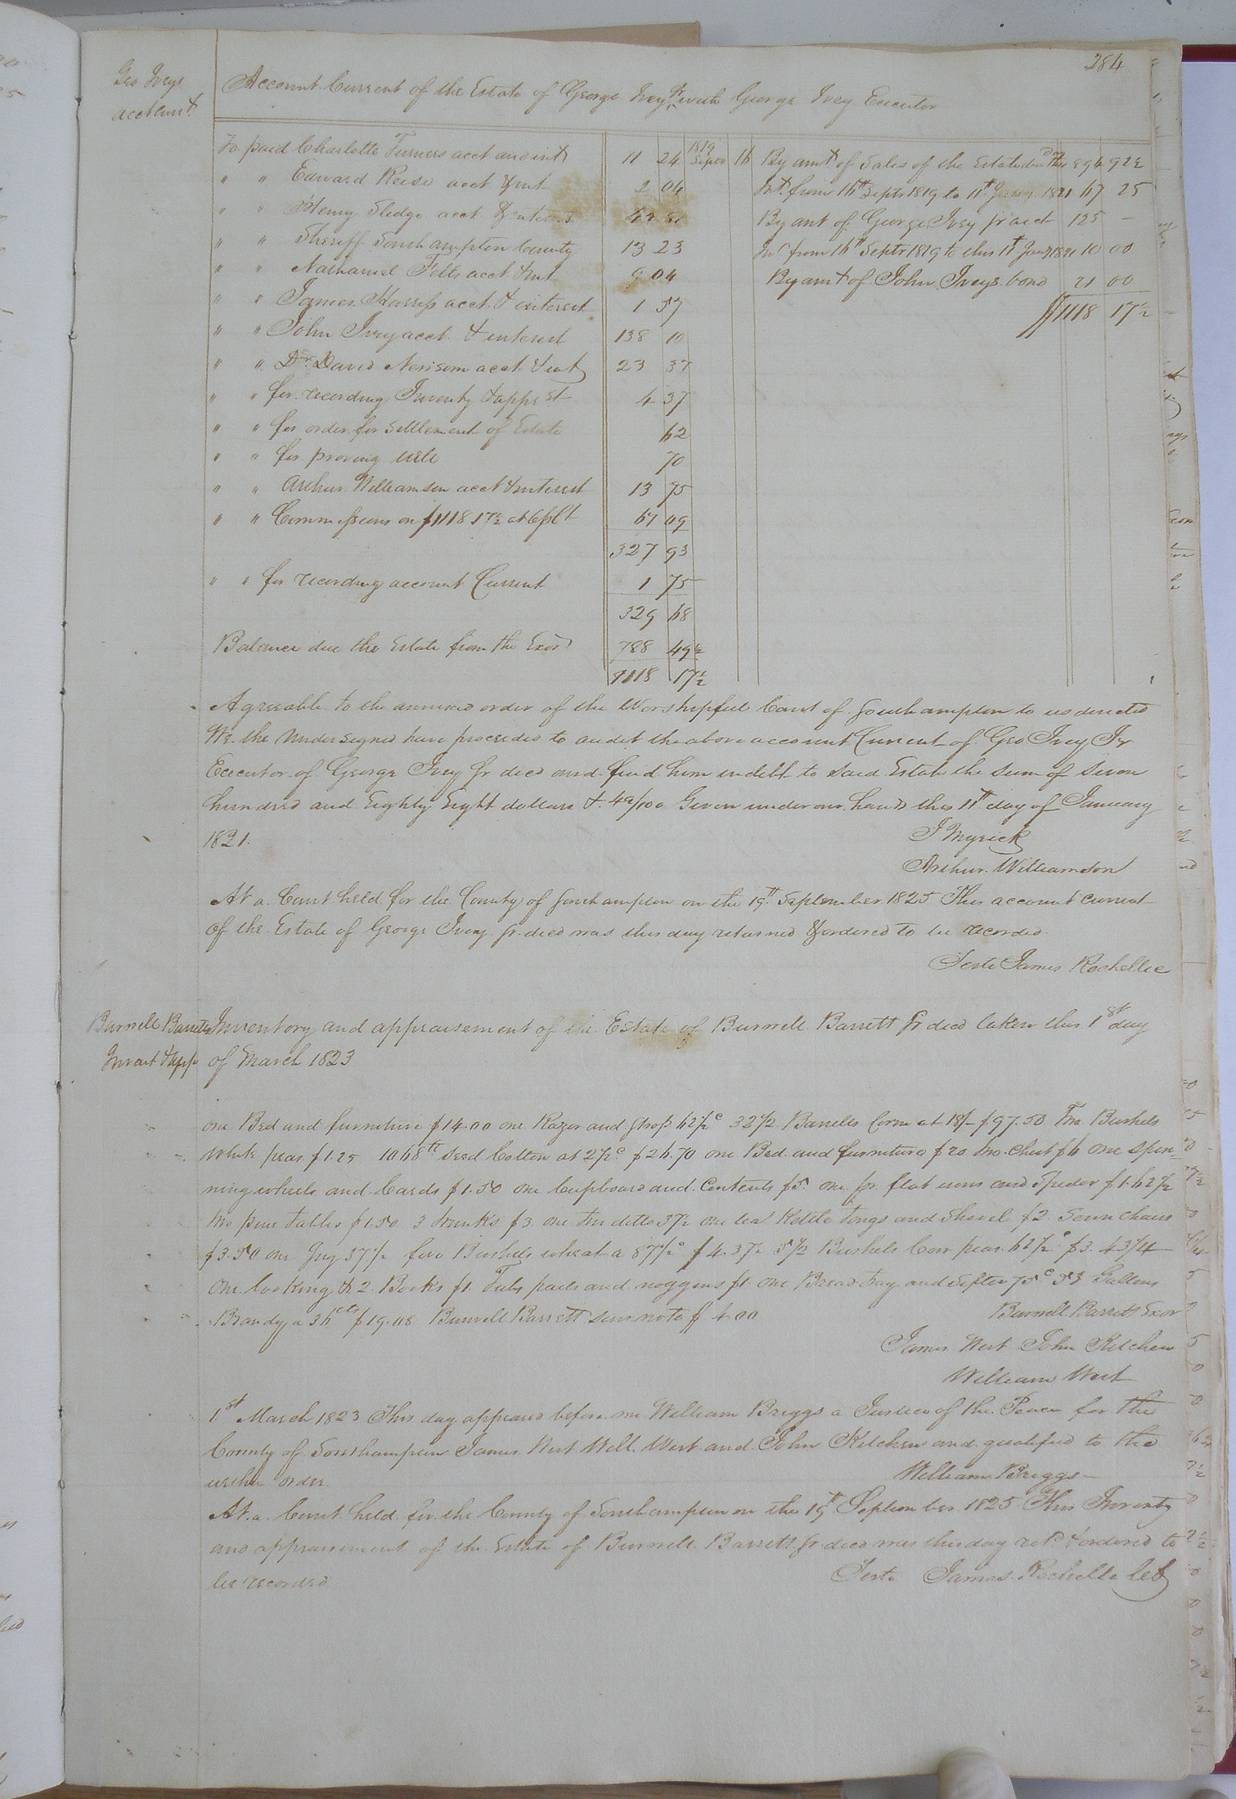 284
Geo Iveys
account
Account Current of the Estate of George Ivey Sr with George Ivey Executor
To paid Charlotte Turners acct and int 11 24
" " Edward Reese acct & int 2 04
" " Henry Sledge acct & interest
" " Sheriff Southampton County 13 23
" " Nathaniel Felts acct & int 9 04
" " James Harriss acct & interest 1 57
" " John Ivey acct & interest 138 10
" " Dr David Newsom acct & int 23 37
" " for recording Inventy & appst 4 37
" " for order for settlement of Estate 62
" " for proving will 70
" " Arthur Williamson acct & interest 13 75
" " Commissions on $1118 17½ at 6 pct 67 09
327 93
" " for recording account Current 1 75
329 68
Balance due the Estate from the Exor 788 49½
1118 17½
1819 Septr 16 By amt of Sales of the Estate 894 92½
Int from 16th Septr 1819 to 11th Jany 1821 67 25
By amt of George Ivey Jr acct 125 —
Int from 16th Septr 1819 to this 11th Jany 1821 10 00
By amt of John Iveys bond 21 00
$1118 17½
Agreeable to the annexed order of the Worshipful Court of Southampton to us directed
We the Undersigned have proceeded to audit the above account Current of Geo Ivey Jr
Executor of George Ivey Sr decd and find him indebt to said Estate the sum of Seven
hundred and Eighty Eight dollars & 49/100 Given under our hands this 11th day of January
1821.
J Myrick
Arthur Williamson
At a Court held for the County of Southampton on the 19th September 1825 This account current
of the Estate of George Ivey Sr decd was this day returned & ordered to be recorded
Teste James Rochelle
Burwell Barretts
Invent & App
Inventory and appraisement of the Estate of Burwell Barrett Sr decd taken this 1st day
of March 1823
one Bed and furniture $14.00 one Razor and Strop 62½c 32½ Barrells Corn at 18/- $97.50 Two Bushels
white peas $1.25 1068lb Seed Cotton at 2½c $26.70 one Bed and furniture $20 two Chest $6 one Spin-
ning wheele and Cards $1.50 one Cupboard and Contents $5. one pr flat irons and Spider $1.62½
two pine tables $1.50 3 trunks $3 one ditto 37½ one tea Kettle tongs and Shovel $2 Seven Chairs
$3.50 one Jug 37½ five Bushels wheat a 87½c $4.37½ 5½ Bushels Corn peas 62½c $3.43¾
One looking & 2 Books $1. Tubs pails and noggens $1. One Bread tray and Sifter 75c 53 Gallons
Brandy a 36cts $19.08 Burwell Barrett Senr note $4.00
Burwell Barrett Exor
James West John Kitchen
William West
1st March 1823 This day appeared before me William Briggs a Justice of the Peace for the
County of Southampton James West Will West and John Kitchen and qualified to the
within order.
William Briggs
At a Court held for the County of Southampton on the 19th September 1825 This Inventy
and appraisement of the Estate of Burwell Barrett Sr decd was this day retd & ordered to
be recorded
Teste James Rochelle clk